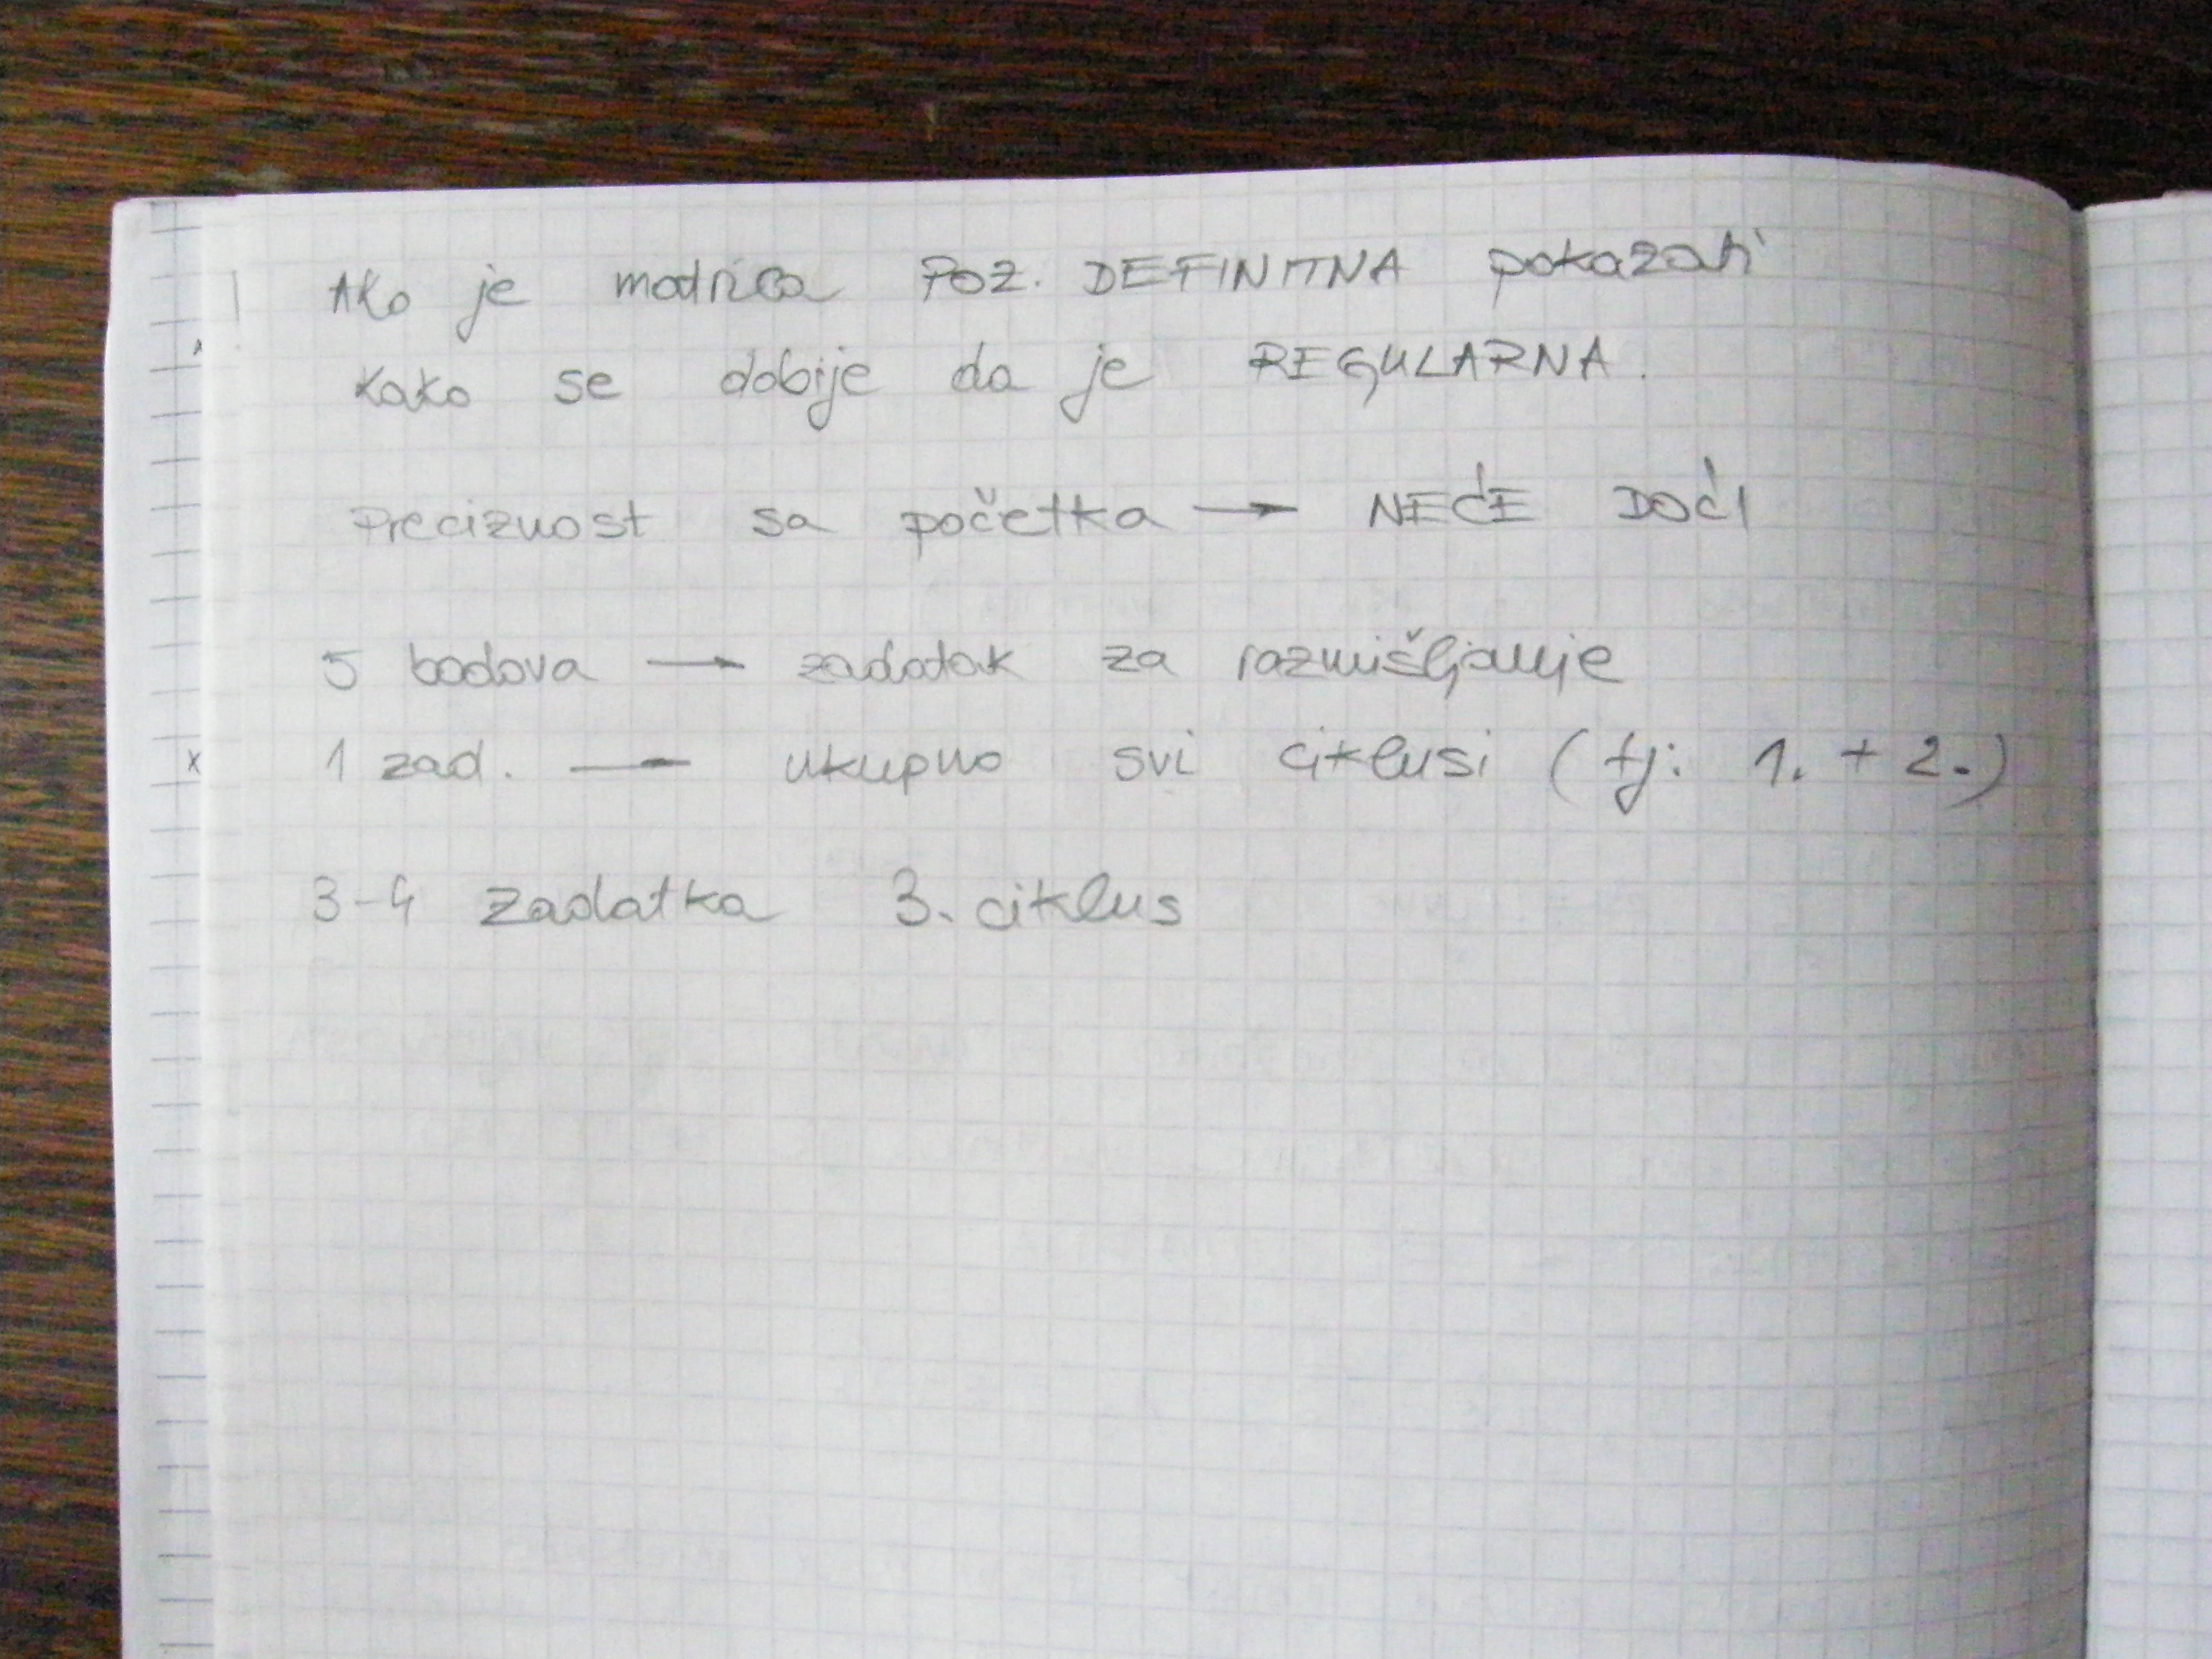 Ako je matrica POZ. DEFINITNA pokazati
kako se dobije da je REGULARNA.
Preciznost sa početka → NEĆE DOĆI
5 bodova → zadatak za razmišljanje
1 zad. → ukupno svi ciklusi (tj: 1. + 2.)
3-4 zadatka 3. ciklus